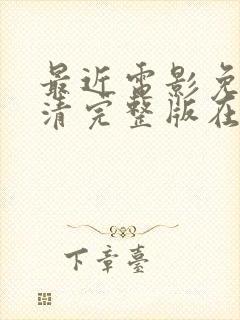 最近电影免
清完整版在
下章臺